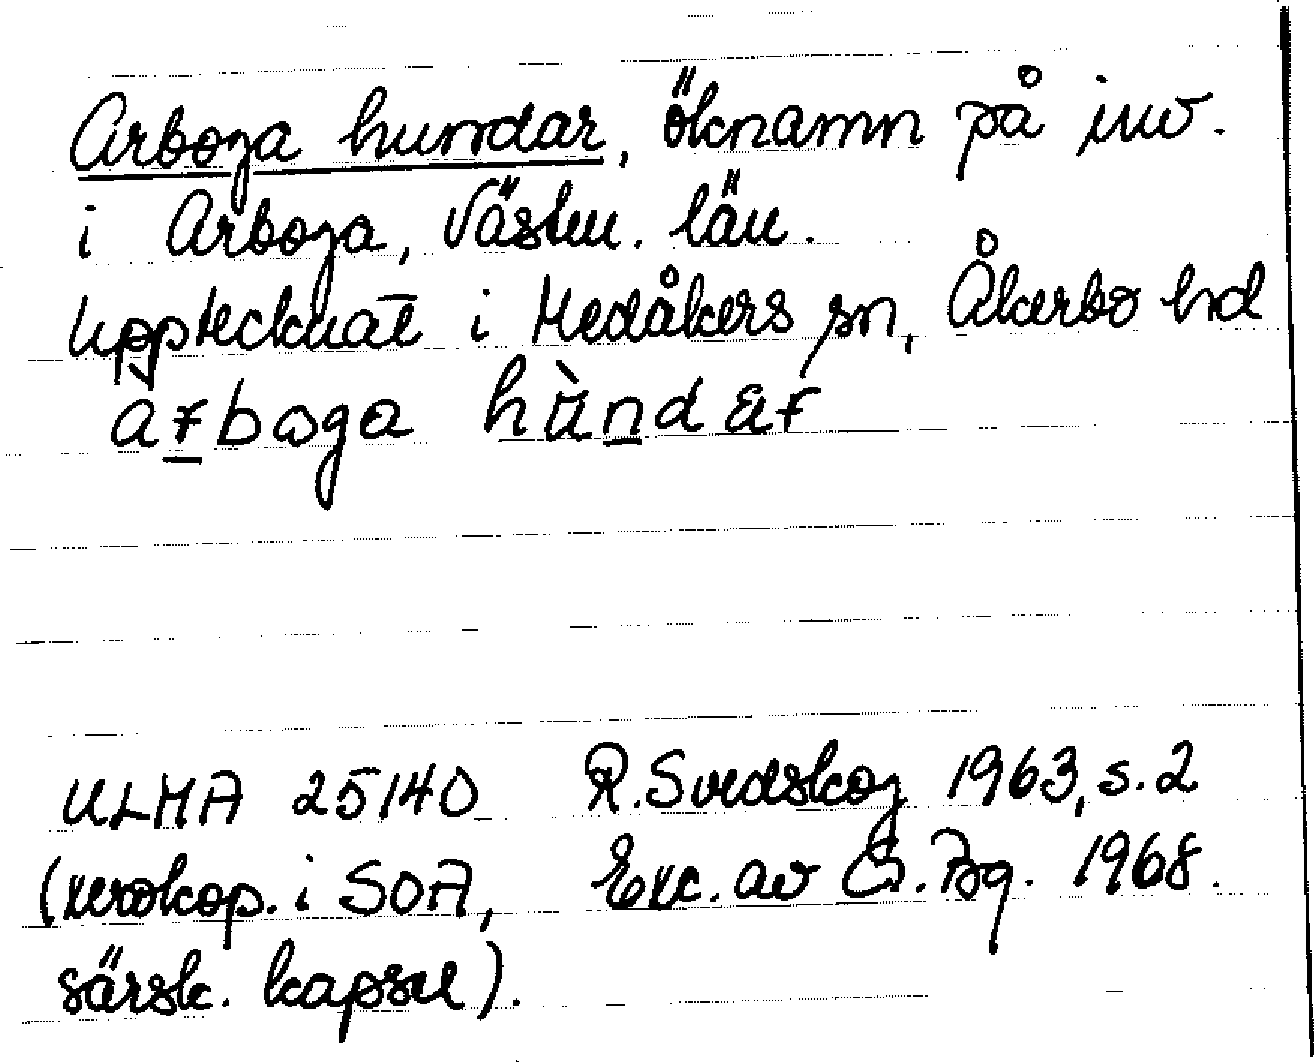 Arboga hundar, öknamn på inv.
i Arboga, Västm. län.
Upptecknat i Medåkers sn, Åkerbo hd
arboga hùndar
ULMA 25140 R. Svedskog 1963, s. 2
(xerokop. i SOA, Exc. av G. Bg. 1968.
särsk. kapsel).